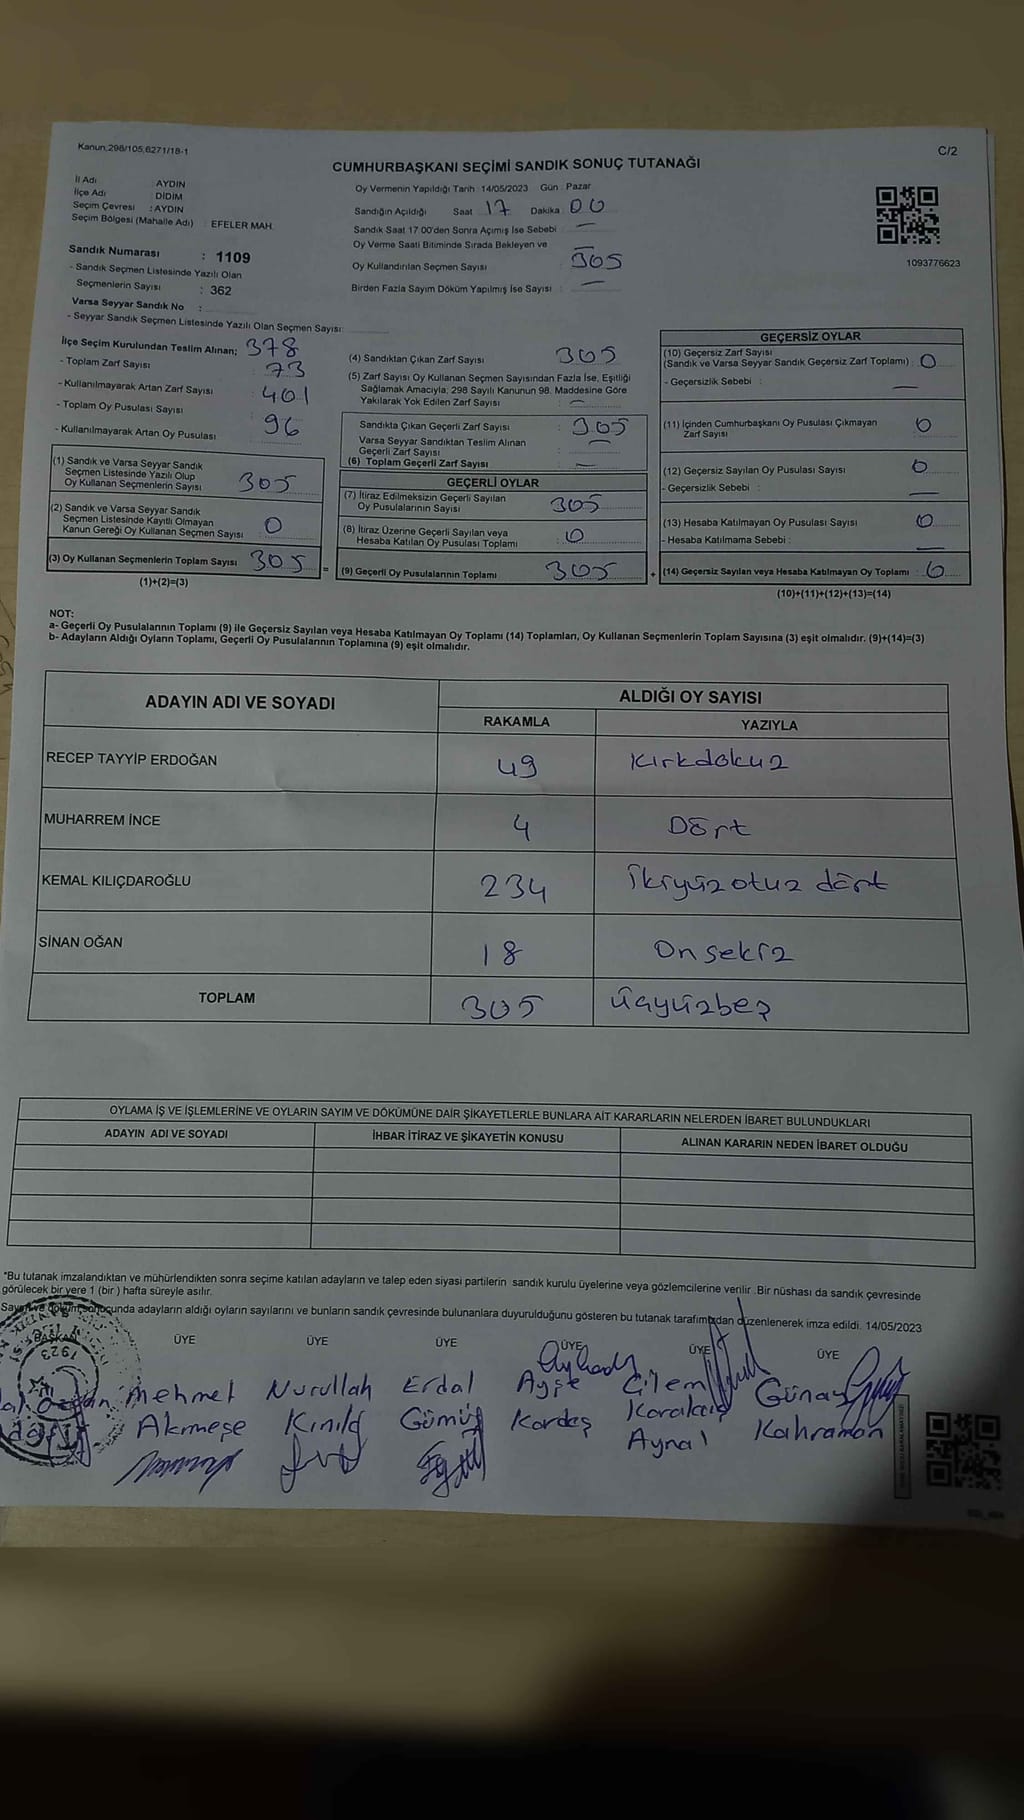 Kanun:298/105,6271/18-1
C/2
CUMHURBAŞKANI SEÇİMİ SANDIK SONUÇ TUTANAĞI
İl Adı : AYDIN
İlçe Adı : DİDİM
Seçim Çevresi : AYDIN
Seçim Bölgesi (Mahalle Adı) : EFELER MAH.
Sandık Numarası : 1109
- Sandık Seçmen Listesinde Yazılı Olan
Seçmenlerin Sayısı : 362
Varsa Seyyar Sandık No :
- Seyyar Sandık Seçmen Listesinde Yazılı Olan Seçmen Sayısı:
Oy Vermenin Yapıldığı Tarih : 14/05/2023 Gün : Pazar
Sandığın Açıldığı Saat 17 Dakika 00
Sandık Saat 17:00'den Sonra Açımış İse Sebebi : —
Oy Verme Saati Bitiminde Sırada Bekleyen ve
Oy Kullandırılan Seçmen Sayısı : 305
Birden Fazla Sayım Döküm Yapılmış İse Sayısı : —
1093776623
İlçe Seçim Kurulundan Teslim Alınan;
- Toplam Zarf Sayısı : 378
- Kullanılmayarak Artan Zarf Sayısı : 73
- Toplam Oy Pusulası Sayısı : 401
- Kullanılmayarak Artan Oy Pusulası : 96
(1) Sandık ve Varsa Seyyar Sandık
Seçmen Listesinde Yazılı Olup
Oy Kullanan Seçmenlerin Sayısı 305
(2) Sandık ve Varsa Seyyar Sandık
Seçmen Listesinde Kayıtlı Olmayan
Kanun Gereği Oy Kullanan Seçmen Sayısı 0
(3) Oy Kullanan Seçmenlerin Toplam Sayısı 305
(1)+(2)=(3)
(4) Sandıktan Çıkan Zarf Sayısı : 305
(5) Zarf Sayısı Oy Kullanan Seçmen Sayısından Fazla İse, Eşitliği
Sağlamak Amacıyla; 298 Sayılı Kanunun 98. Maddesine Göre
Yakılarak Yok Edilen Zarf Sayısı : —
Sandıkta Çıkan Geçerli Zarf Sayısı : 305
Varsa Seyyar Sandıktan Teslim Alınan
Geçerli Zarf Sayısı : —
(6) Toplam Geçerli Zarf Sayısı : —
GEÇERLİ OYLAR
(7) İtiraz Edilmeksizin Geçerli Sayılan
Oy Pusulalarının Sayısı : 305
(8) İtiraz Üzerine Geçerli Sayılan veya
Hesaba Katılan Oy Pusulası Toplamı : 0
= (9) Geçerli Oy Pusulalarının Toplamı 305
GEÇERSİZ OYLAR
(10) Geçersiz Zarf Sayısı
(Sandık ve Varsa Seyyar Sandık Geçersiz Zarf Toplamı) : 0
- Geçersizlik Sebebi : —
(11) İçinden Cumhurbaşkanı Oy Pusulası Çıkmayan
Zarf Sayısı : 0
(12) Geçersiz Sayılan Oy Pusulası Sayısı : 0
- Geçersizlik Sebebi : —
(13) Hesaba Katılmayan Oy Pusulası Sayısı : 0
- Hesaba Katılmama Sebebi : —
+ (14) Geçersiz Sayılan veya Hesaba Katılmayan Oy Toplamı : 0
(10)+(11)+(12)+(13)=(14)
NOT:
a- Geçerli Oy Pusulalarının Toplamı (9) ile Geçersiz Sayılan veya Hesaba Katılmayan Oy Toplamı (14) Toplamları, Oy Kullanan Seçmenlerin Toplam Sayısına (3) eşit olmalıdır. (9)+(14)=(3)
b- Adayların Aldığı Oyların Toplamı, Geçerli Oy Pusulalarının Toplamına (9) eşit olmalıdır.
ADAYIN ADI VE SOYADI ALDIĞI OY SAYISI
RAKAMLA YAZIYLA
RECEP TAYYİP ERDOĞAN 49 Kırkdokuz
MUHARREM İNCE 4 Dört
KEMAL KILIÇDAROĞLU 234 İkiyüzotuz dört
SİNAN OĞAN 18 Onsekiz
TOPLAM 305 Üçyüzbeş
OYLAMA İŞ VE İŞLEMLERİNE VE OYLARIN SAYIM VE DÖKÜMÜNE DAİR ŞİKAYETLERLE BUNLARA AİT KARARLARIN NELERDEN İBARET BULUNDUKLARI
ADAYIN ADI VE SOYADI İHBAR İTİRAZ VE ŞİKAYETİN KONUSU ALINAN KARARIN NEDEN İBARET OLDUĞU
*Bu tutanak imzalandıktan ve mühürlendikten sonra seçime katılan adayların ve talep eden siyasi partilerin sandık kurulu üyelerine veya gözlemcilerine verilir. Bir nüshası da sandık çevresinde
görülecek bir yere 1 (bir) hafta süreyle asılır.
Sayım ve döküm sonucunda adayların aldığı oyların sayılarını ve bunların sandık çevresinde bulunanlara duyurulduğunu gösteren bu tutanak tarafımızdan düzenlenerek imza edildi. 14/05/2023
BAŞKAN ÜYE ÜYE ÜYE ÜYE ÜYE ÜYE
1923
Mehmet Nurullah Erdal Ayşe Çilem Günay
Akmeşe Kınılğ Gümüş Kardeş Karakaış Kahraman
Aynal